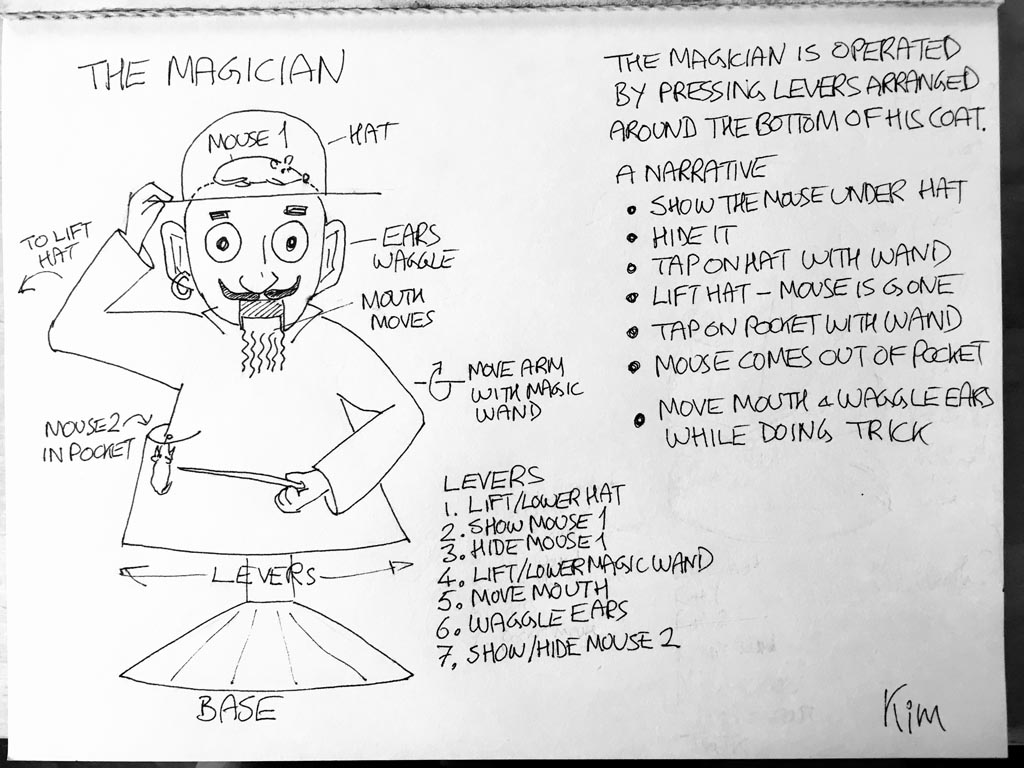 THE MAGICIAN
MOUSE 1
HAT
TO LIFT
HAT
EARS
WAGGLE
MOUTH
MOVES
MOVE ARM
WITH MAGIC
WAND
MOUSE 2
IN POCKET
LEVERS
BASE
LEVERS
1. LIFT/LOWER HAT
2. SHOW MOUSE 1
3. HIDE MOUSE 1
4. LIFT/LOWER MAGIC WAND
5. MOVE MOUTH
6. WAGGLE EARS
7. SHOW/HIDE MOUSE 2
THE MAGICIAN IS OPERATED
BY PRESSING LEVERS ARRANGED
AROUND THE BOTTOM OF HIS COAT.
A NARRATIVE
• SHOW THE MOUSE UNDER HAT
• HIDE IT
• TAP ON HAT WITH WAND
• LIFT HAT – MOUSE IS GONE
• TAP ON POCKET WITH WAND
• MOUSE COMES OUT OF POCKET
• MOVE MOUTH & WAGGLE EARS
WHILE DOING TRICK
Kim